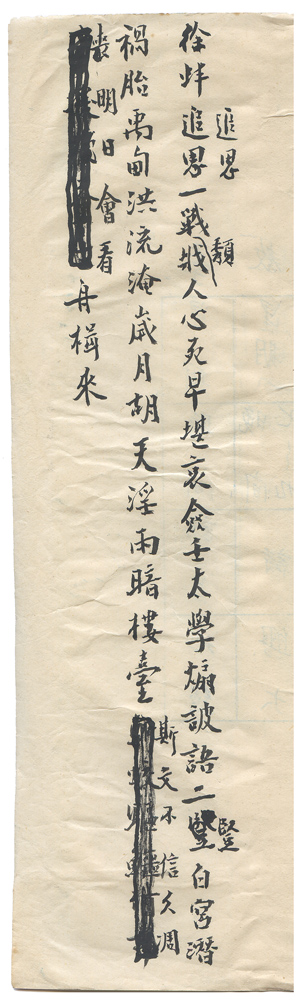 追思
徐蚌追思一戰頹人心死早堪哀僉壬太學煽詖語二豎白宮潛
豎
禍胎禹甸洪流淹歲月胡天淫雨暗樓臺斯文不信久凋
喪明日會看舟楫來